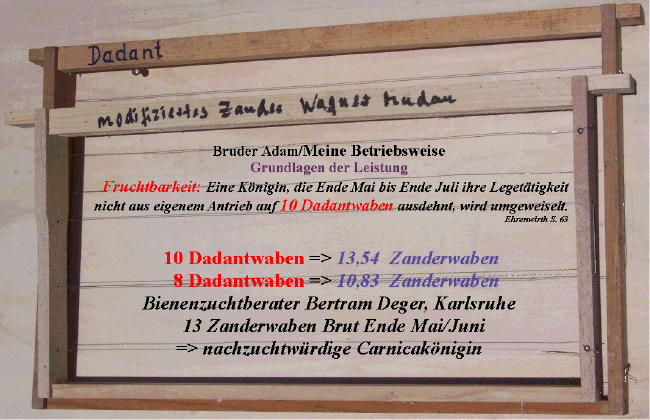 Dadant
modifiziertes Zander Wagner
Bruder Adam/Meine Betriebsweise
Grundlagen der Leistung
Fruchtbarkeit: Eine Königin, die Ende Mai bis Ende Juli ihre Legetätigkeit
nicht aus eigenem Antrieb auf 10 Dadantwaben ausdehnt, wird umgeweiselt.
Ehrenwirth S. 63
10 Dadantwaben => 13,54 Zanderwaben
8 Dadantwaben => 10,83 Zanderwaben
Bienenzuchtberater Bertram Deger, Karlsruhe
13 Zanderwaben Brut Ende Mai/Juni
=> nachzuchtwürdige Carnicakönigin